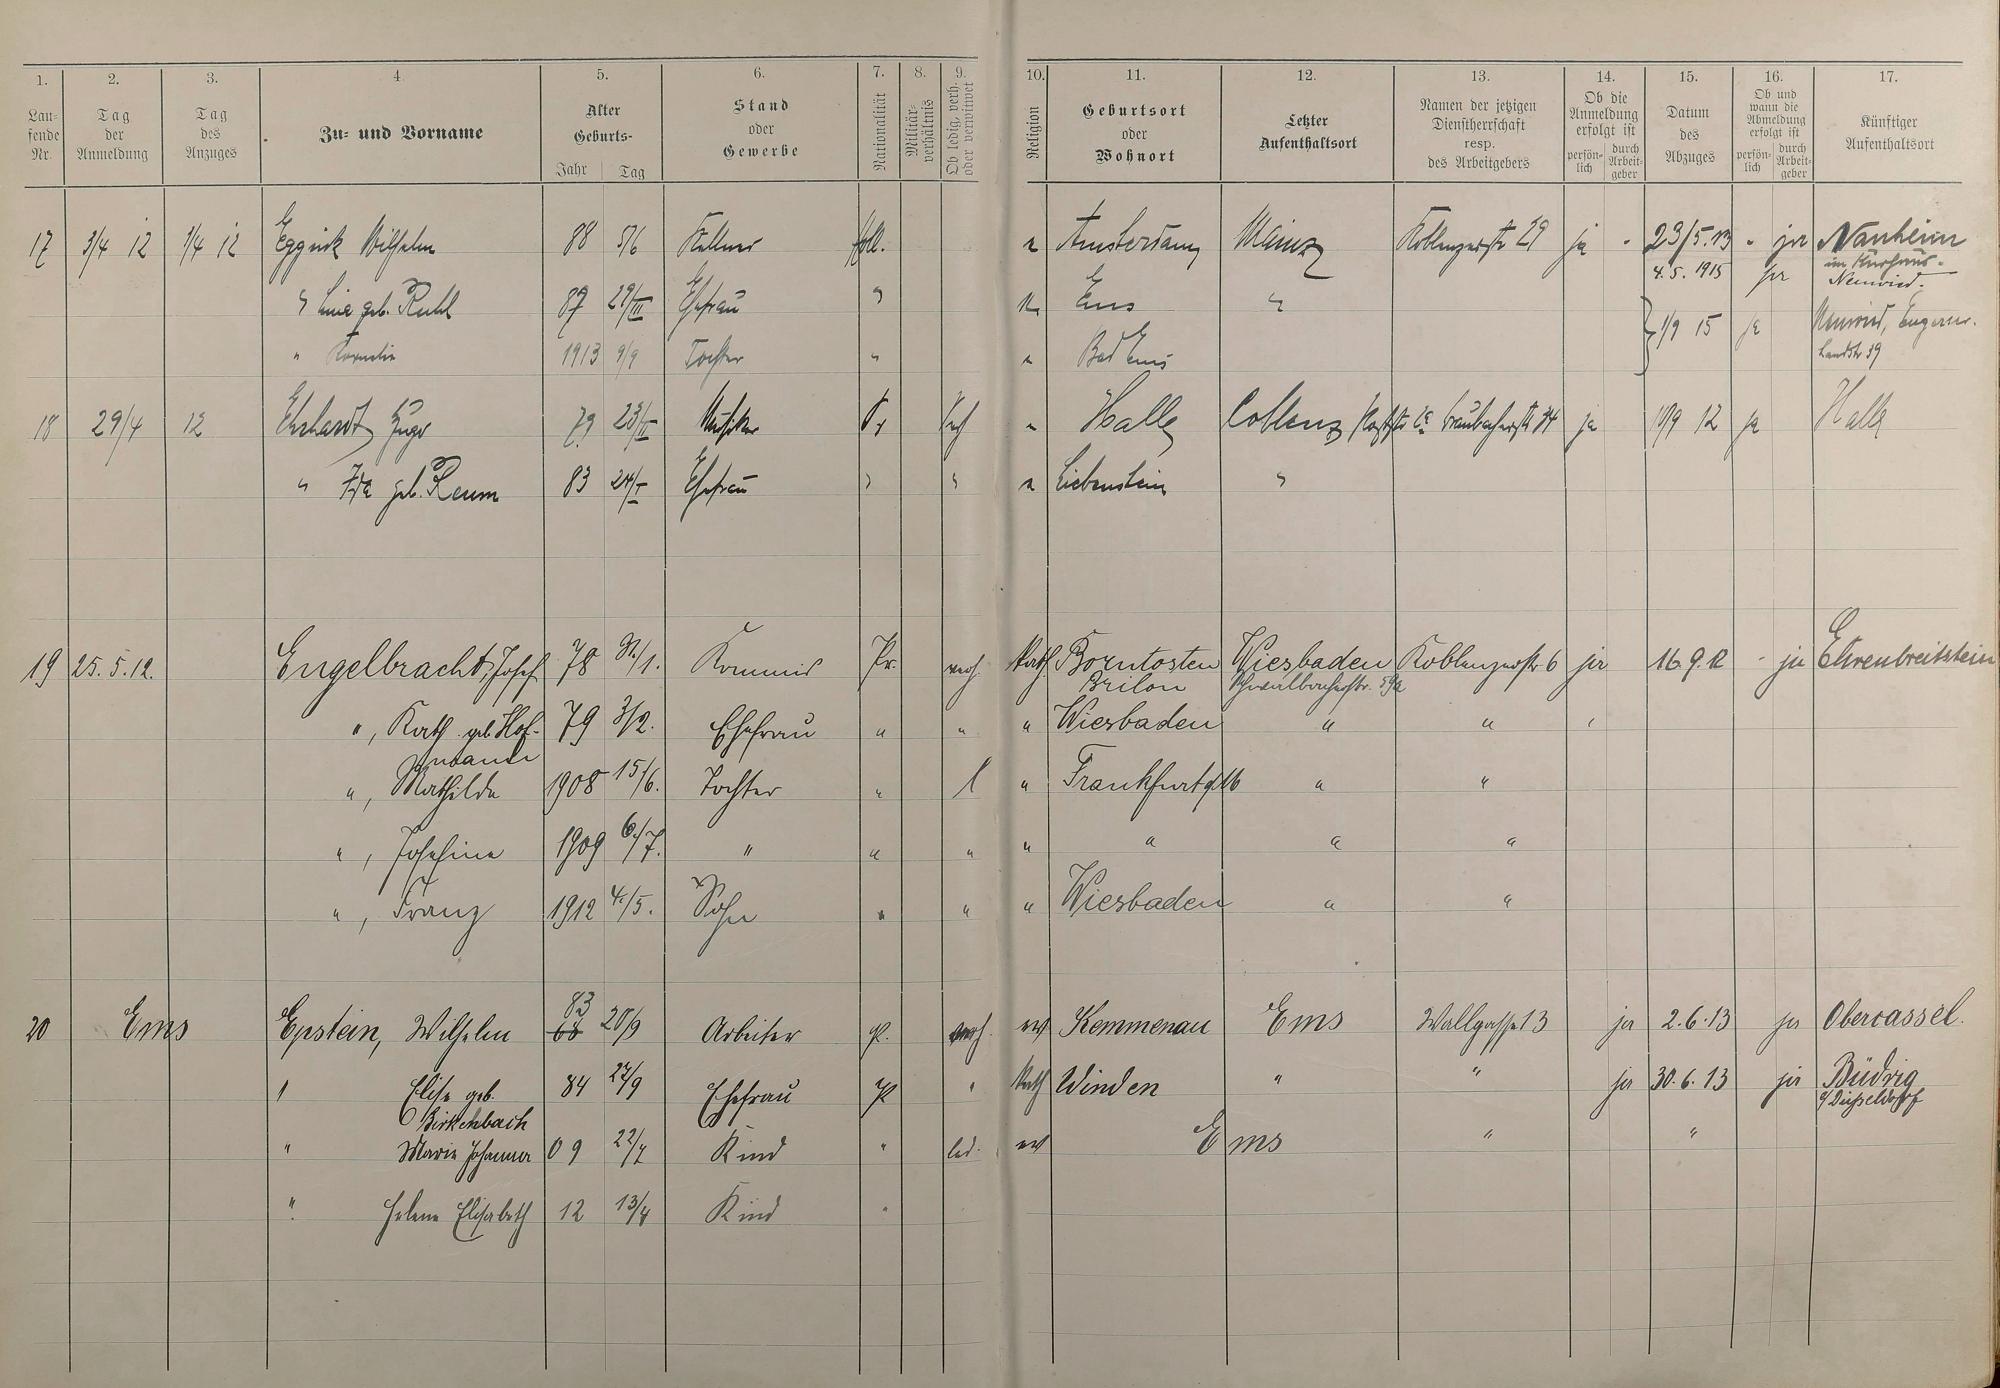 1. 2. 3. 4. 5. 6. 7. 8. 9. 10. 11. 12. 13. 14. 15. 16. 17.
Lau-
fende
Nr.
Tag
der
Anmeldung
Tag
des
Anzuges
Zu- und Vorname
Alter
Geburts-
Jahr Tag
Stand
oder
Gewerbe
Nationalität
Militär-
verhältnis
Ob ledig, verh.
oder verwitwet
Religion
Geburtsort
oder
Wohnort
Letzter
Aufenthaltsort
Namen der jetzigen
Dienstherrschaft
resp.
des Arbeitgebers
Ob die
Anmeldung
erfolgt ist
persön-
lich
durch
Arbeit-
geber
Datum
des
Abzuges
Ob und
wann die
Abmeldung
erfolgt ist
persön-
lich
durch
Arbeit-
geber
Künftiger
Aufenthaltsort
17 3/4 12 1/4 12 Eggink Wilhelm 88 5/6 Kellner holl. Amsterdam Mainz Koblenzerstr 29 ja - 23/5.13 - ja Nauheim
4.5.1915 ja im Kurhaus-
Neuwied.
" Lina geb. Ruhl 87 29/III Ehefrau " Ems "
1/9 15 ja Neuwied, Engerser.
Landstr 39
" Kornelia 1913 9/9 Tochter " " Bad Ems
18 29/4 12 Ehrhardt Hugo 79 23/II Musiker Pr Vh " Halle Coblenz Graubacherstr 34 ja 10/9 12 ja Halle
" Ida geb. Reum 83 24/I Ehefrau " " Liebenstein "
19 25.5.12. Engelbracht, Josef 78 31./1. Kommis Pr. verh. Kath. Borntosten Wiesbaden Koblenzerstr 6 ja 16.9.12 - ja Ehrenbreitstein
Brilon Schwalbacherstr. 59a
", Kath. geb. Hof- 79 3/2. Ehefrau " " " Wiesbaden " "
mann
", Mathilde 1908 15/6. Tochter " l " Frankfurt a/M " "
", Josefine 1909 6./7. " " " " " " "
", Franz 1912 4./5. Sohn " " " Wiesbaden " "
20 Ems Epstein, Wilhelm 83 20/9 Arbeiter P. verh. ev Kemmenau Ems Wallgasse 13 ja 2.6.13 ja Obercassel.
" Elise geb. 84 27/9 Ehefrau P " Kath Winden " " ja 30.6.13 ja Büdrig
Birkenbach a/ Düsseldorf
" Marie Johanna 09 22/7 Kind " led. ev Ems " "
" Helene Elisabeth 12 13/4 Kind "